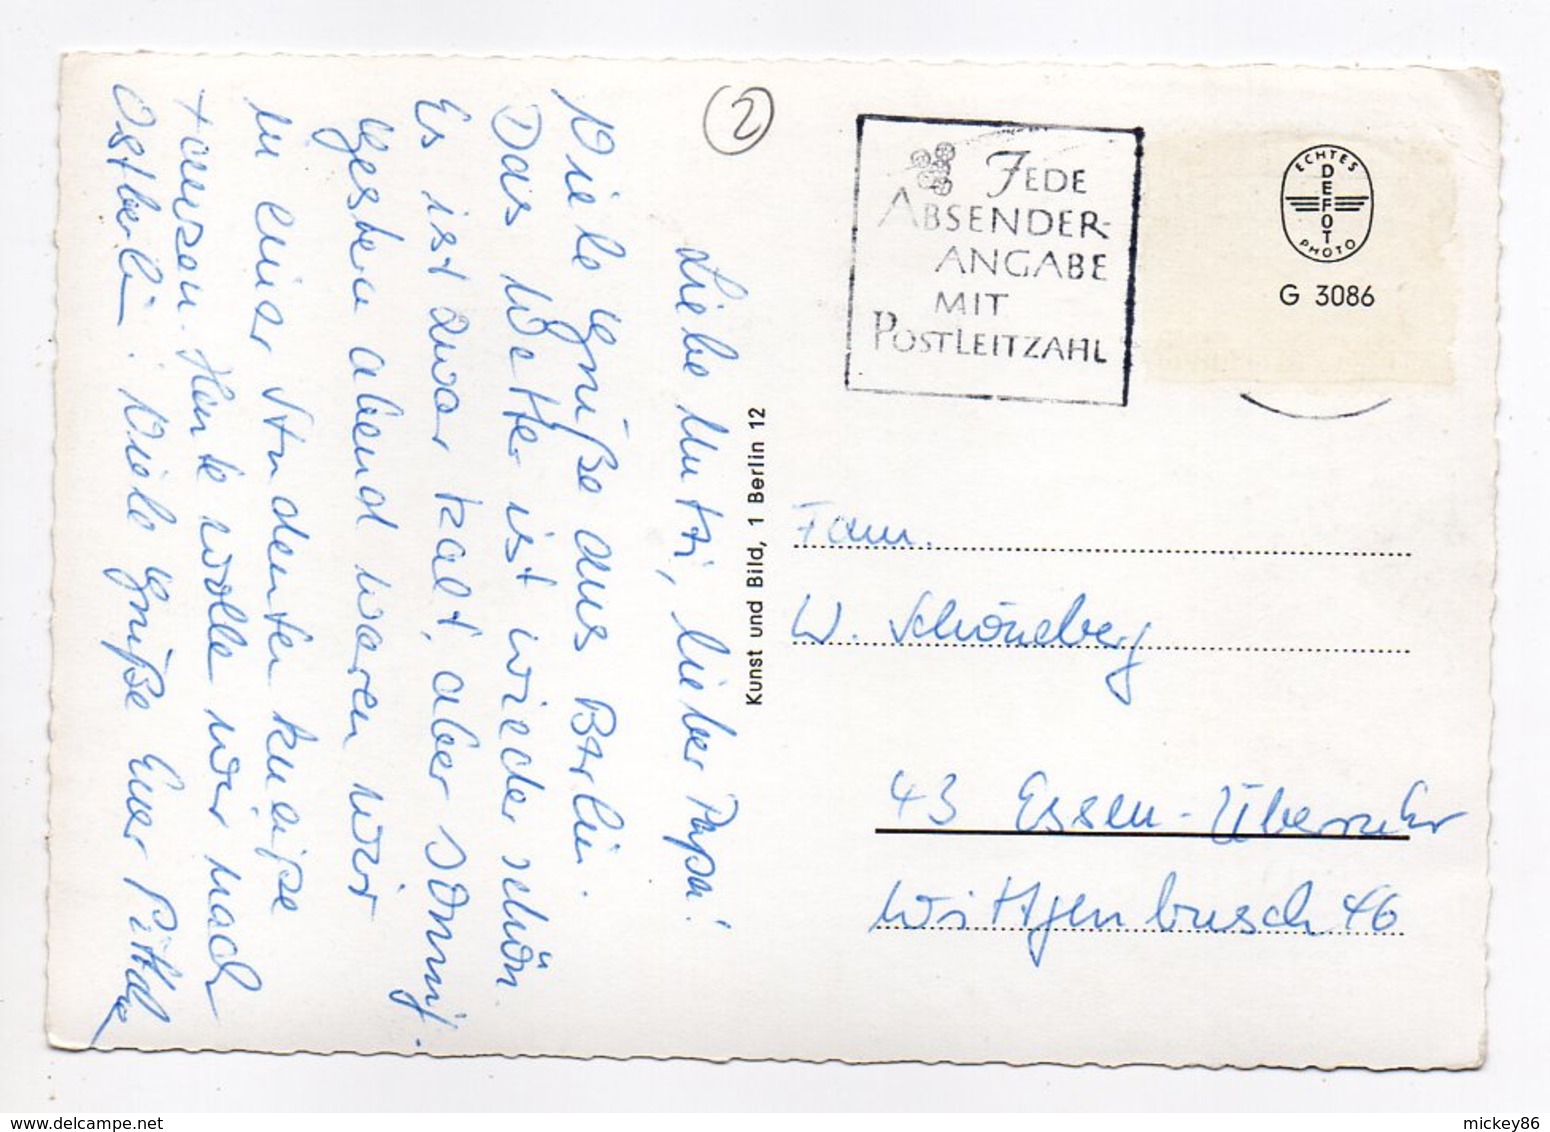 Liebe Mutti, lieber Papa!
Viele Grüße aus Berlin.
Das Wetter ist wieder schön
Es ist zwar kalt, aber sonnig.
Gestern abend waren wir
in einer Studentenkneipe
tanzen. Heute wollen wir nach
Ostberlin. Viele Grüße Euer
2
JEDE
ABSENDER-
ANGABE
MIT
POSTLEITZAHL
ECHTES
DEFOT
PHOTO
G 3086
Kunst und Bild, 1 Berlin 12
Fam.
W. Schöneberg
43 Essen-Überruhr
Wittgenbusch 46
mickey86